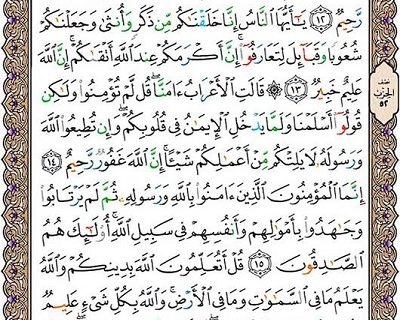 رَّحِيمٌ ١٢ يَٰٓأَيُّهَا ٱلنَّاسُ إِنَّا خَلَقۡنَٰكُم مِّن ذَكَرٖ وَأُنثَىٰ وَجَعَلۡنَٰكُمۡ
شُعُوبٗا وَقَبَآئِلَ لِتَعَارَفُوٓاْۚ إِنَّ أَكۡرَمَكُمۡ عِندَ ٱللَّهِ أَتۡقَىٰكُمۡۚ إِنَّ ٱللَّهَ
عَلِيمٌ خَبِيرٞ ١٣ قَالَتِ ٱلۡأَعۡرَابُ ءَامَنَّاۖ قُل لَّمۡ تُؤۡمِنُواْ وَلَٰكِن
قُولُوٓاْ أَسۡلَمۡنَا وَلَمَّا يَدۡخُلِ ٱلۡإِيمَٰنُ فِي قُلُوبِكُمۡۖ وَإِن تُطِيعُواْ ٱللَّهَ
وَرَسُولَهُۥ لَا يَلِتۡكُم مِّنۡ أَعۡمَٰلِكُمۡ شَيۡـًٔاۚ إِنَّ ٱللَّهَ غَفُورٞ رَّحِيمٌ ١٤
إِنَّمَا ٱلۡمُؤۡمِنُونَ ٱلَّذِينَ ءَامَنُواْ بِٱللَّهِ وَرَسُولِهِۦ ثُمَّ لَمۡ يَرۡتَابُواْ
وَجَٰهَدُواْ بِأَمۡوَٰلِهِمۡ وَأَنفُسِهِمۡ فِي سَبِيلِ ٱللَّهِۚ أُوْلَٰٓئِكَ هُمُ
ٱلصَّٰدِقُونَ ١٥ قُلۡ أَتُعَلِّمُونَ ٱللَّهَ بِدِينِكُمۡ وَٱللَّهُ
يَعۡلَمُ مَا فِي ٱلسَّمَٰوَٰتِ وَمَا فِي ٱلۡأَرۡضِۚ وَٱللَّهُ بِكُلِّ شَيۡءٍ عَلِيمٞ
نصف
الحزب
٥٢